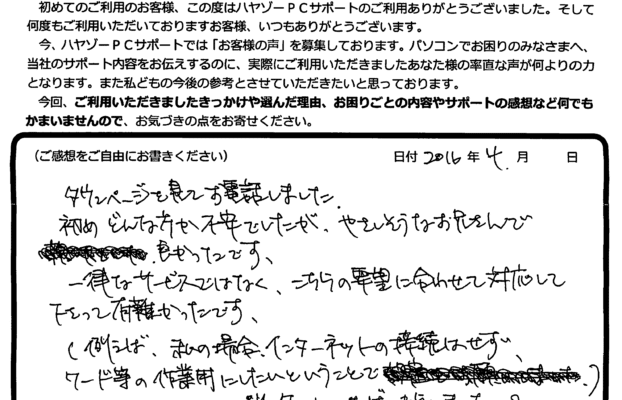 初めてのご利用のお客様、この度はハヤゾーＰＣサポートのご利用ありがとうございました。そして
何度もご利用いただいておりますお客様、いつもありがとうございます。
今、ハヤゾーＰＣサポートでは「お客様の声」を募集しております。パソコンでお困りのみなさまへ、
当社のサポート内容をお伝えするのに、実際にご利用いただきましたあなた様の率直な声が何よりの力
となります。また私どもの今後の参考とさせていただきたいと思っております。
今回、ご利用いただきましたきっかけや選んだ理由、お困りごとの内容やサポートの感想など何でも
かまいませんので、お気づきの点をお寄せください。
（ご感想をご自由にお書きください） 日付 2016 年 4. 月 日
タウンページを見てお電話しました.
初め どんな方か不安でしたが、やさしそうなお兄さんで
良かったです、
一律なサービスではなく、こちらの要望に合わせて対応して
下さって有難かったです、
(例えば、私の場合、インターネットの接続はせず、
ワード等の作業用にしたいということで )